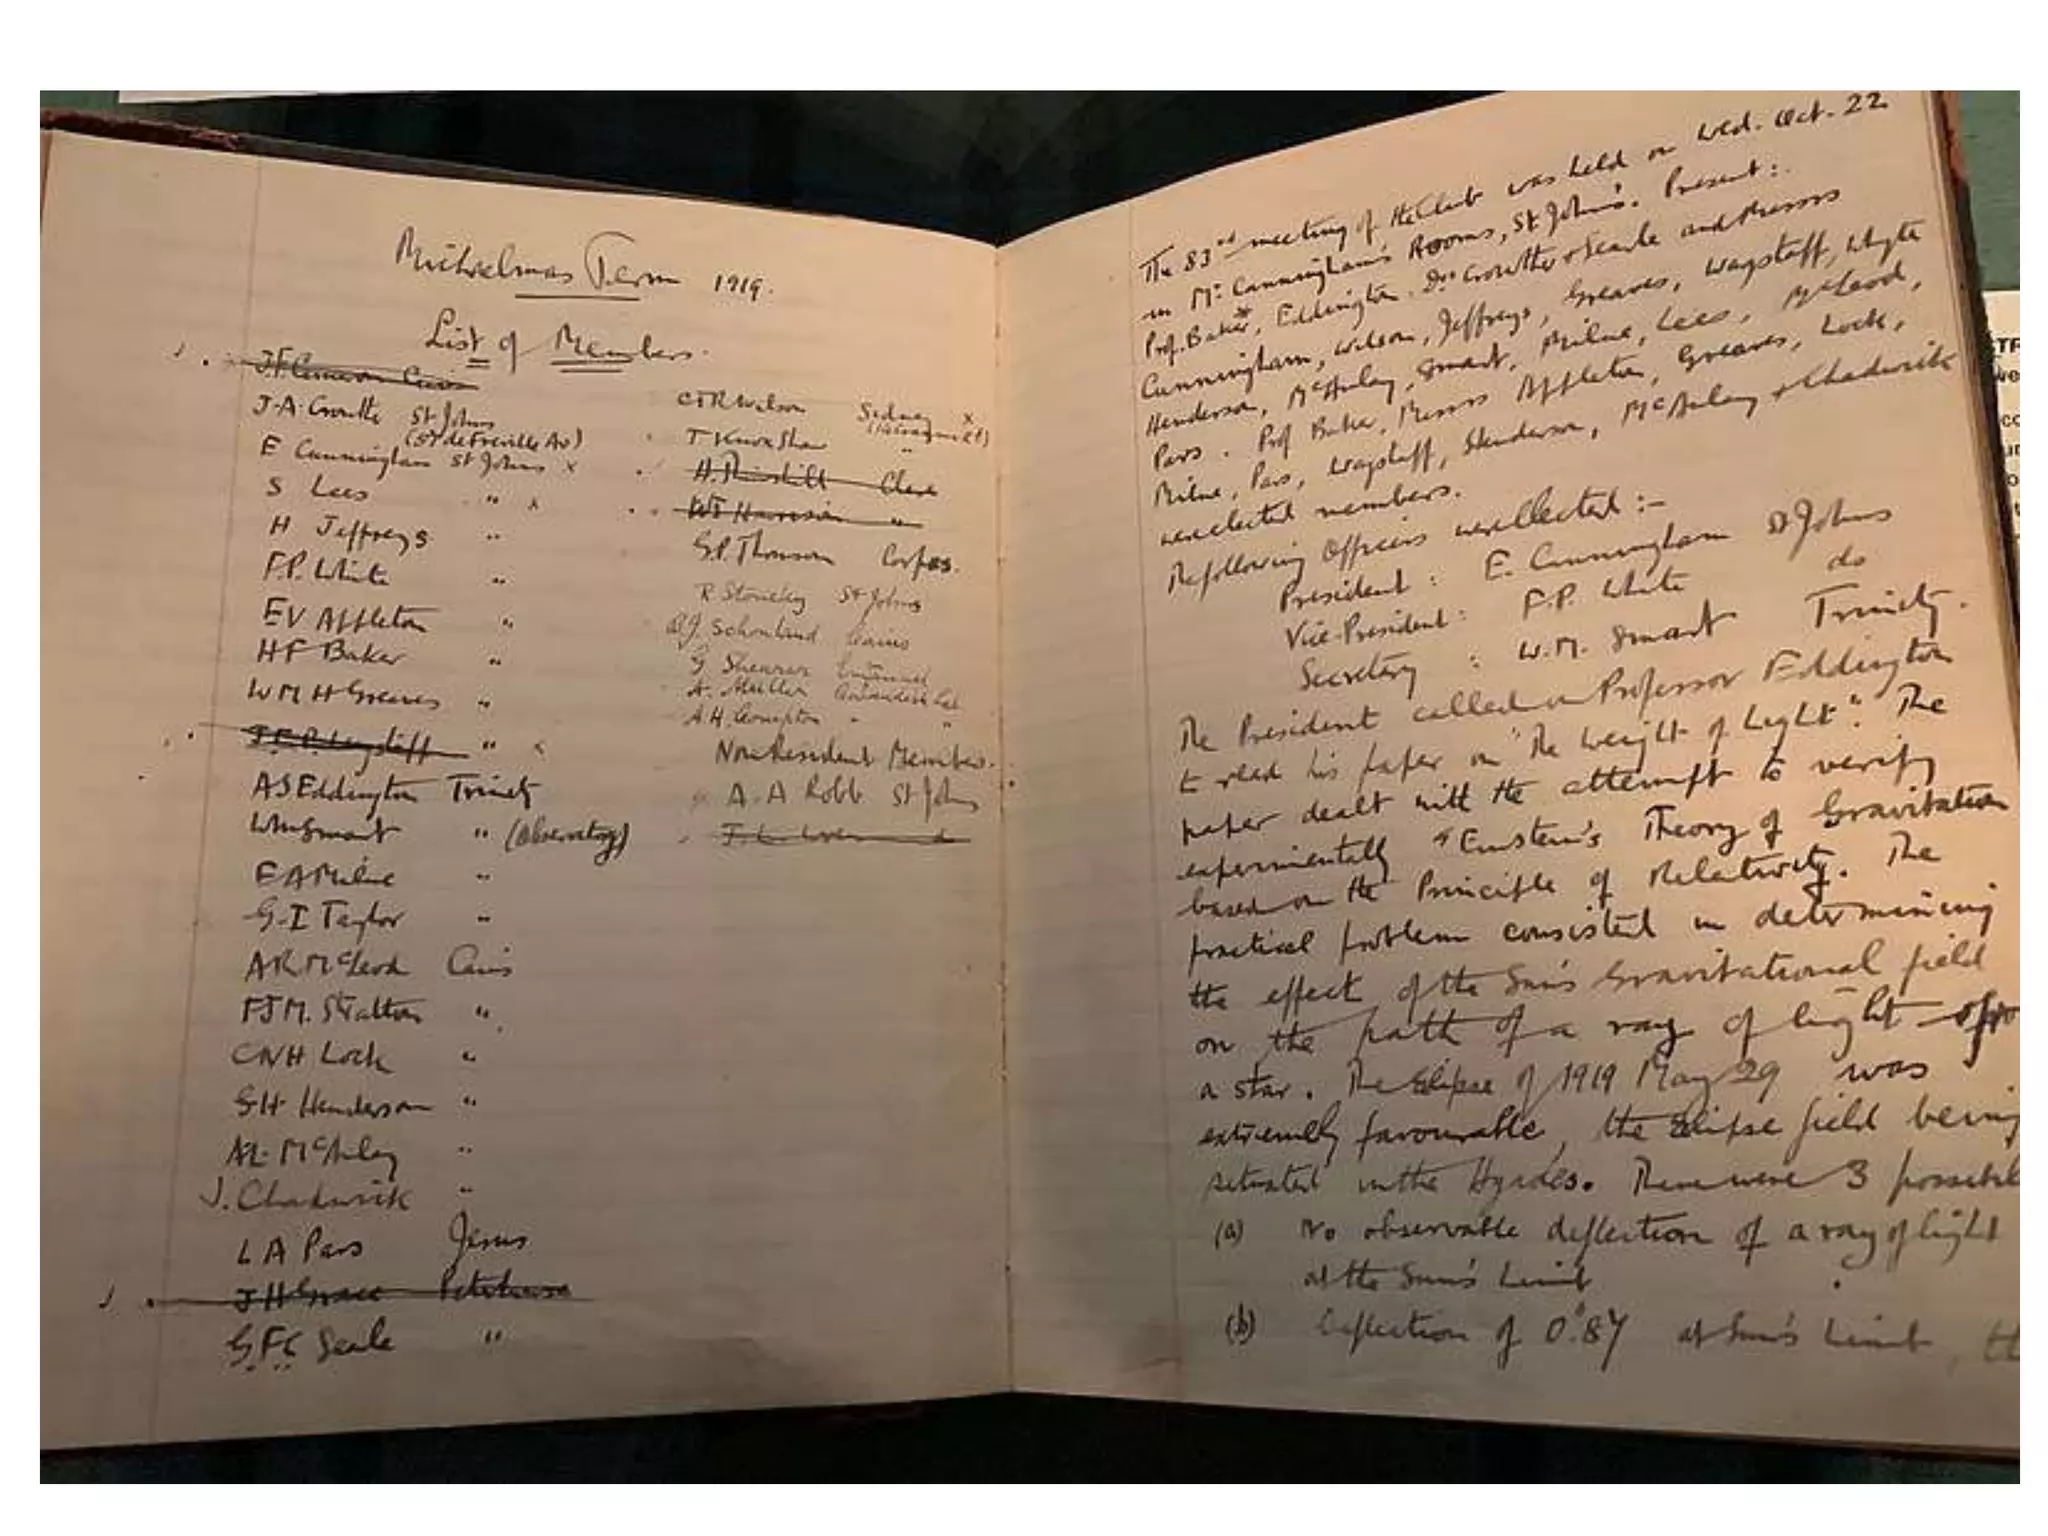 Michaelmas Term 1919.
List of Members.
J.F. Cameron Caius
J.A. Crowther St Johns
(57 de Freville Av)
E Cunningham St Johns x
S Lees " x
H Jeffreys "
F.P. White "
EV Appleton "
HF Baker "
WMH Greaves "
J.E.P. Wagstaff " x
AS Eddington Trinity
WM Smart " (Observatory)
EA Milne "
G-I Taylor "
AR McLeod Caius
FJM. Stratton "
CNH Lock "
GH Henderson "
AL McAulay "
J. Chadwick "
LA Pars Jesus
JH Grace Peterhouse
G.F.C Searle "
CTR Wilson Sidney x
T Knox Shaw "
H. Thirkill Clare
WJ Harrison "
G.P. Thomson Corpus.
R Stoneley St Johns
B.J. Schonland Caius
G Shearer Emmanuel
A. Muller Cavendish Lab
A.H. Compton " "
Non Resident Members.
x A.A Robb St Johns
The 83rd meeting of the Club was held on Wed. Oct. 22
in Mr Cunningham's Rooms, St John's. Present:
Prof. Baker, Eddington. Drs Crowther & Searle and Messrs
Cunningham, Wilson, Jeffreys, Greaves, Wagstaff, Whyte
Henderson, McAulay, Smart, Milne, Lees, McLeod,
Pars. Prof Baker, Messrs Appleton, Greaves, Lock,
Milne, Pars, Wagstaff, Henderson, McAulay & Chadwick
were elected members.
The following Officers were elected :-
President : E. Cunningham St Johns
Vice-President : F.P. White do
Secretary : W.M. Smart Trinity.
The President called on Professor Eddington
to read his paper on "The Weight of Light". The
paper dealt with the attempt to verify
experimentally "Einstein's Theory of Gravitation
based on the Principle of Relativity. The
practical problem consisted in determining
the effect of the Sun's Gravitational field
on the path of a ray of light
a star. The Eclipse of 1919 May 29 was
extremely favourable, the Eclipse field being
situated in the Hyades. There were 3 possible
(a) No observable deflection of a ray of light
at the Sun's limb
(b) Deflection of 0".87 at Sun's limb,